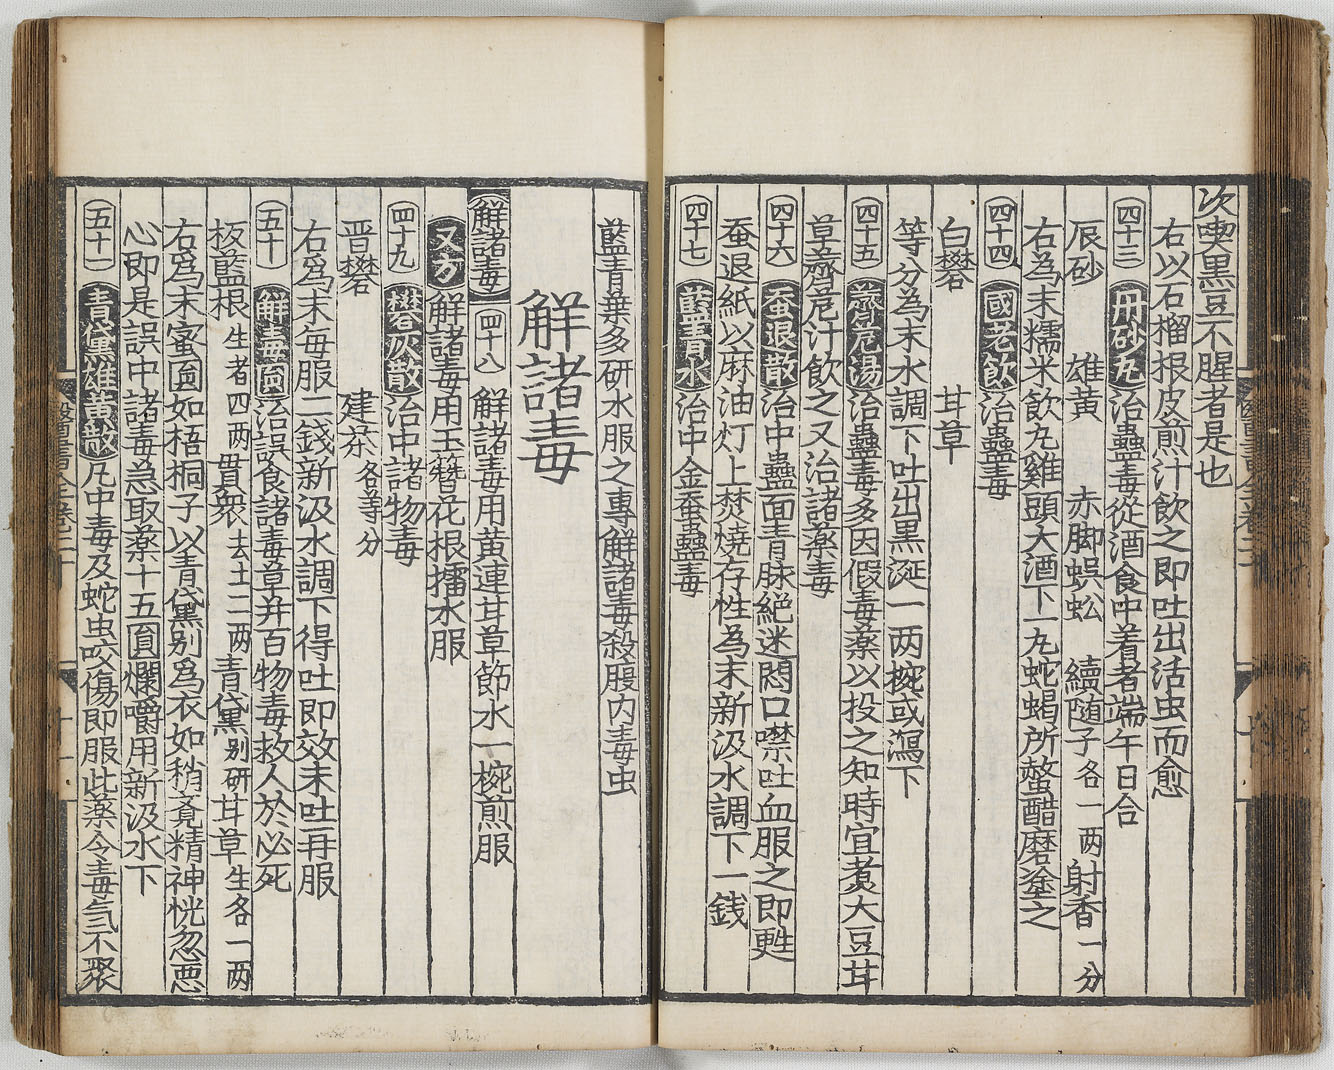 次喫黒豆不腥者是也
右以石榴根皮煎汁飲之即吐出活虫而愈
四十三 丹砂丸 治蠱毒從酒食中着者端午日合
辰砂 雄黃 赤脚蜈蚣 續随子各一两射香一分
右為末糯米飲丸雞頭大酒下一丸蛇蝎所螫醋磨塗之
四十四 國老飲 治蠱毒
白礬 甘草
等分為末水調下吐出黒涎一两椀或瀉下
四十五 薺苨湯 治蠱毒多因假毒藥以投之知時宜煮大豆甘
草薺苨汁飲之又治諸藥毒
四十六 蚕退散 治中蠱面青脉絶迷悶口噤吐血服之即甦
蚕退紙以麻油灯上焚燒存性為末新汲水調下一銭
四十七 藍青水 治中金蚕蠱毒
藍青葉多研水服之專解諸毒殺腹内毒虫
解諸毒
解諸毒 四十八 解諸毒用黃連甘草節水一椀煎服
又方 解諸毒用玉簪花根擂水服
四十九 礬灰散 治中諸物毒
晋礬 建茶各等分
右爲末每服二錢新汲水調下得吐即效未吐再服
五十 解毒圎 治誤食諸毒草并百物毒救人於必死
板藍根生者四两貫衆去土二两青黛别研甘草生各一两
右爲末蜜圎如梧桐子以青黛别爲衣如稍覺精神恍忽悪
心即是誤中諸毒急取藥十五圎爛嚼用新汲水下
五十一 青黛雄黃散 凡中毒及蛇虫咬傷即服此藥令毒气不聚